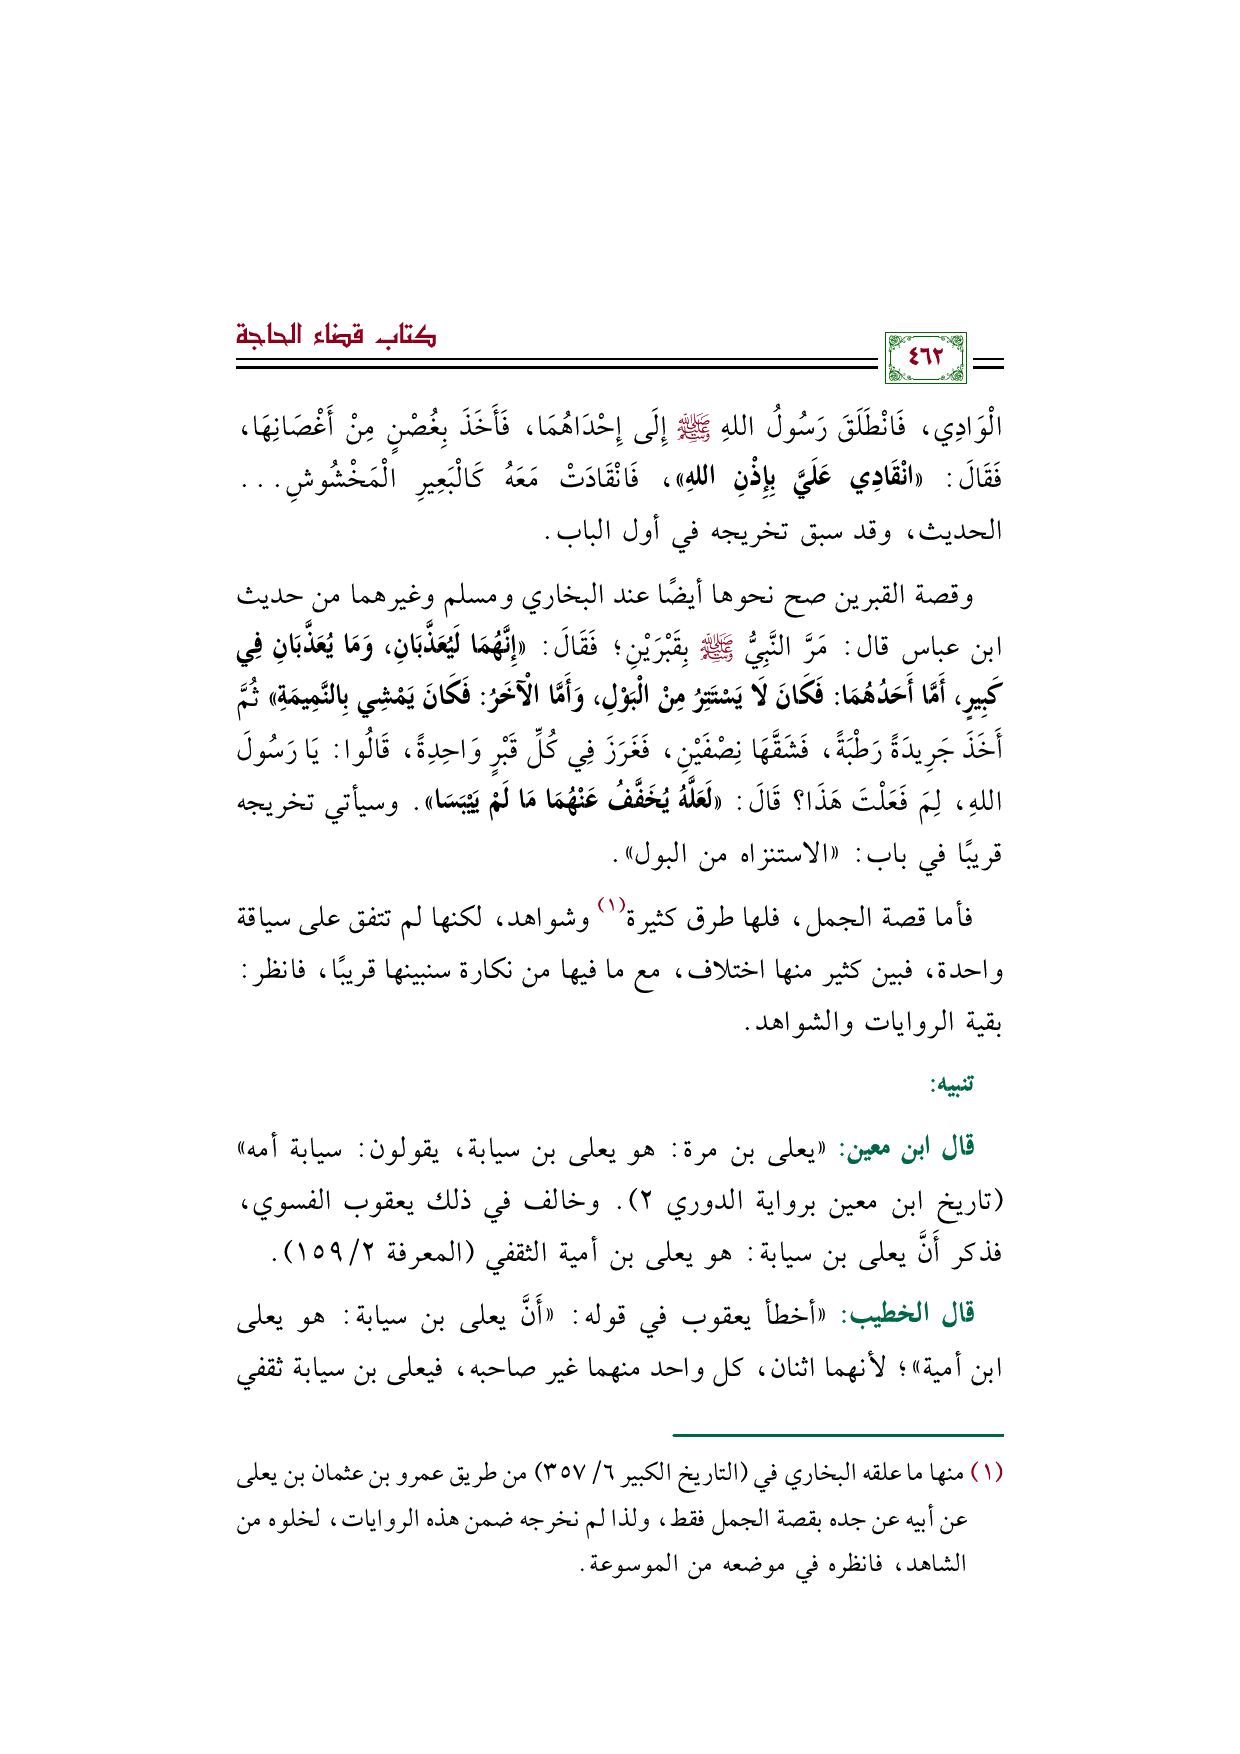 كتاب قضاء الحاجة
٤٦٢
الْوَادِي، فَانْطَلَقَ رَسُولُ اللهِ ﷺ إِلَى إِحْدَاهُمَا، فَأَخَذَ بِغُصْنٍ مِنْ أَغْصَانِهَا،
فَقَالَ: «انْقَادِي عَلَيَّ بِإِذْنِ اللهِ»، فَانْقَادَتْ مَعَهُ كَالْبَعِيرِ الْمَخْشُوشِ...
الحديث، وقد سبق تخريجه في أول الباب.
وقصة القبرين صح نحوها أيضًا عند البخاري ومسلم وغيرهما من حديث
ابن عباس قال: مَرَّ النَّبِيُّ ﷺ بِقَبْرَيْنِ؛ فَقَالَ: «إِنَّهُمَا لَيُعَذَّبَانِ، وَمَا يُعَذَّبَانِ فِي
كَبِيرٍ، أَمَّا أَحَدُهُمَا: فَكَانَ لَا يَسْتَتِرُ مِنْ الْبَوْلِ، وَأَمَّا الْآخَرُ: فَكَانَ يَمْشِي بِالنَّمِيمَةِ» ثُمَّ
أَخَذَ جَرِيدَةً رَطْبَةً، فَشَقَّهَا نِصْفَيْنِ، فَغَرَزَ فِي كُلِّ قَبْرٍ وَاحِدِةً، قَالُوا: يَا رَسُولَ
اللهِ، لِمَ فَعَلْتَ هَذَا؟ قَالَ: «لَعَلَّهُ يُخَفَّفُ عَنْهُمَا مَا لَمْ يَيْبَسَا». وسيأتي تخريجه
قريبًا في باب: «الاستنزاه من البول».
فأما قصة الجمل، فلها طرق كثيرة(١) وشواهد، لكنها لم تتفق على سياقة
واحدة، فبين كثير منها اختلاف، مع ما فيها من نكارة سنبينها قريبًا، فانظر:
بقية الروايات والشواهد.
تنبيه:
قال ابن معين: «يعلى بن مرة: هو يعلى بن سيابة، يقولون: سيابة أمه»
(تاريخ ابن معين برواية الدوري ٢). وخالف في ذلك يعقوب الفسوي،
فذكر أَنَّ يعلى بن سيابة: هو يعلى بن أمية الثقفي (المعرفة ٢/ ١٥٩).
قال الخطيب: «أخطأ يعقوب في قوله: «أَنَّ يعلى بن سيابة: هو يعلى
ابن أمية»؛ لأنهما اثنان، كل واحد منهما غير صاحبه، فيعلى بن سيابة ثقفي
(١) منها ما علقه البخاري في (التاريخ الكبير ٦/ ٣٥٧) من طريق عمرو بن عثمان بن يعلى
عن أبيه عن جده بقصة الجمل فقط، ولذا لم نخرجه ضمن هذه الروايات، لخلوه من
الشاهد، فانظره في موضعه من الموسوعة.